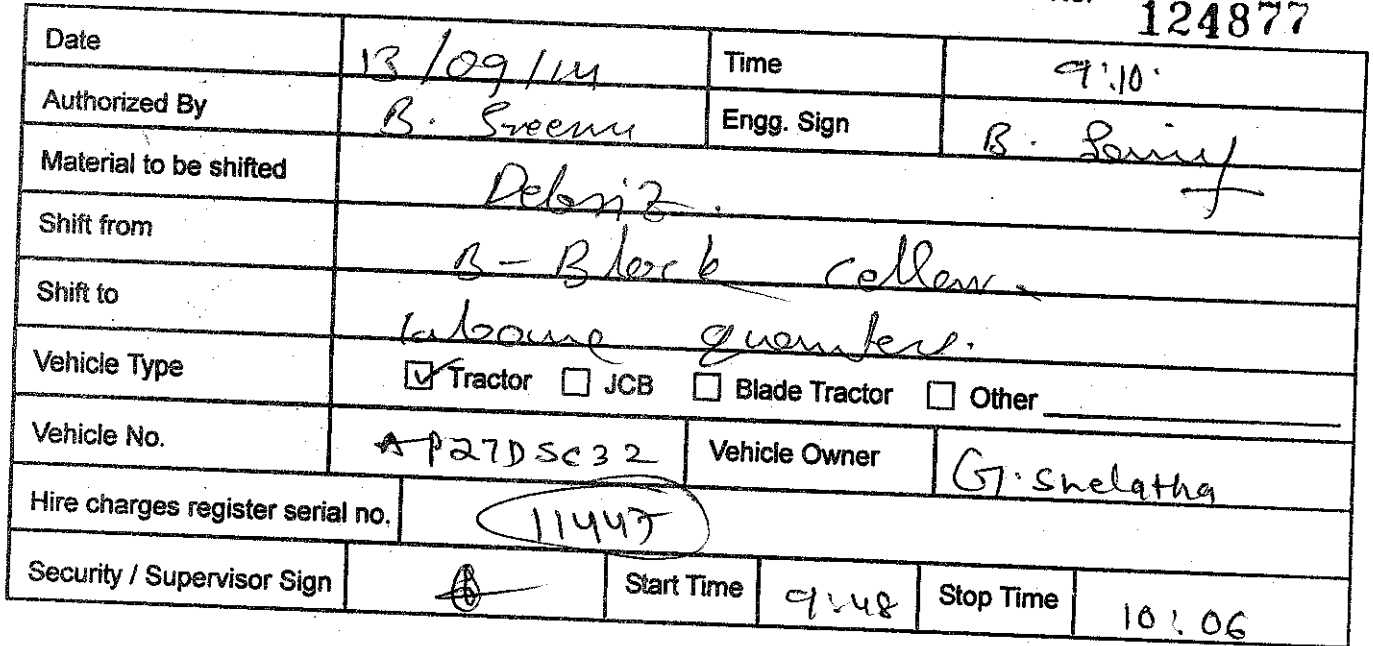 No. 124877
Date 13/09/14 Time 9:10
Authorized By B. Sreenu Engg. Sign B.
Material to be shifted Debriz.
Shift from B-Block cellar.
Shift to labour quarters.
Vehicle Type ☑ Tractor ☐ JCB ☐ Blade Tractor ☐ Other
Vehicle No. AP27D5C32 Vehicle Owner G. Snelatha
Hire charges register serial no. 11447
Security / Supervisor Sign Start Time 9:48 Stop Time 10:06